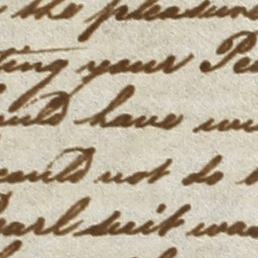 the pleasure
ting your Pe
ould have
could not do
Pearl suit was